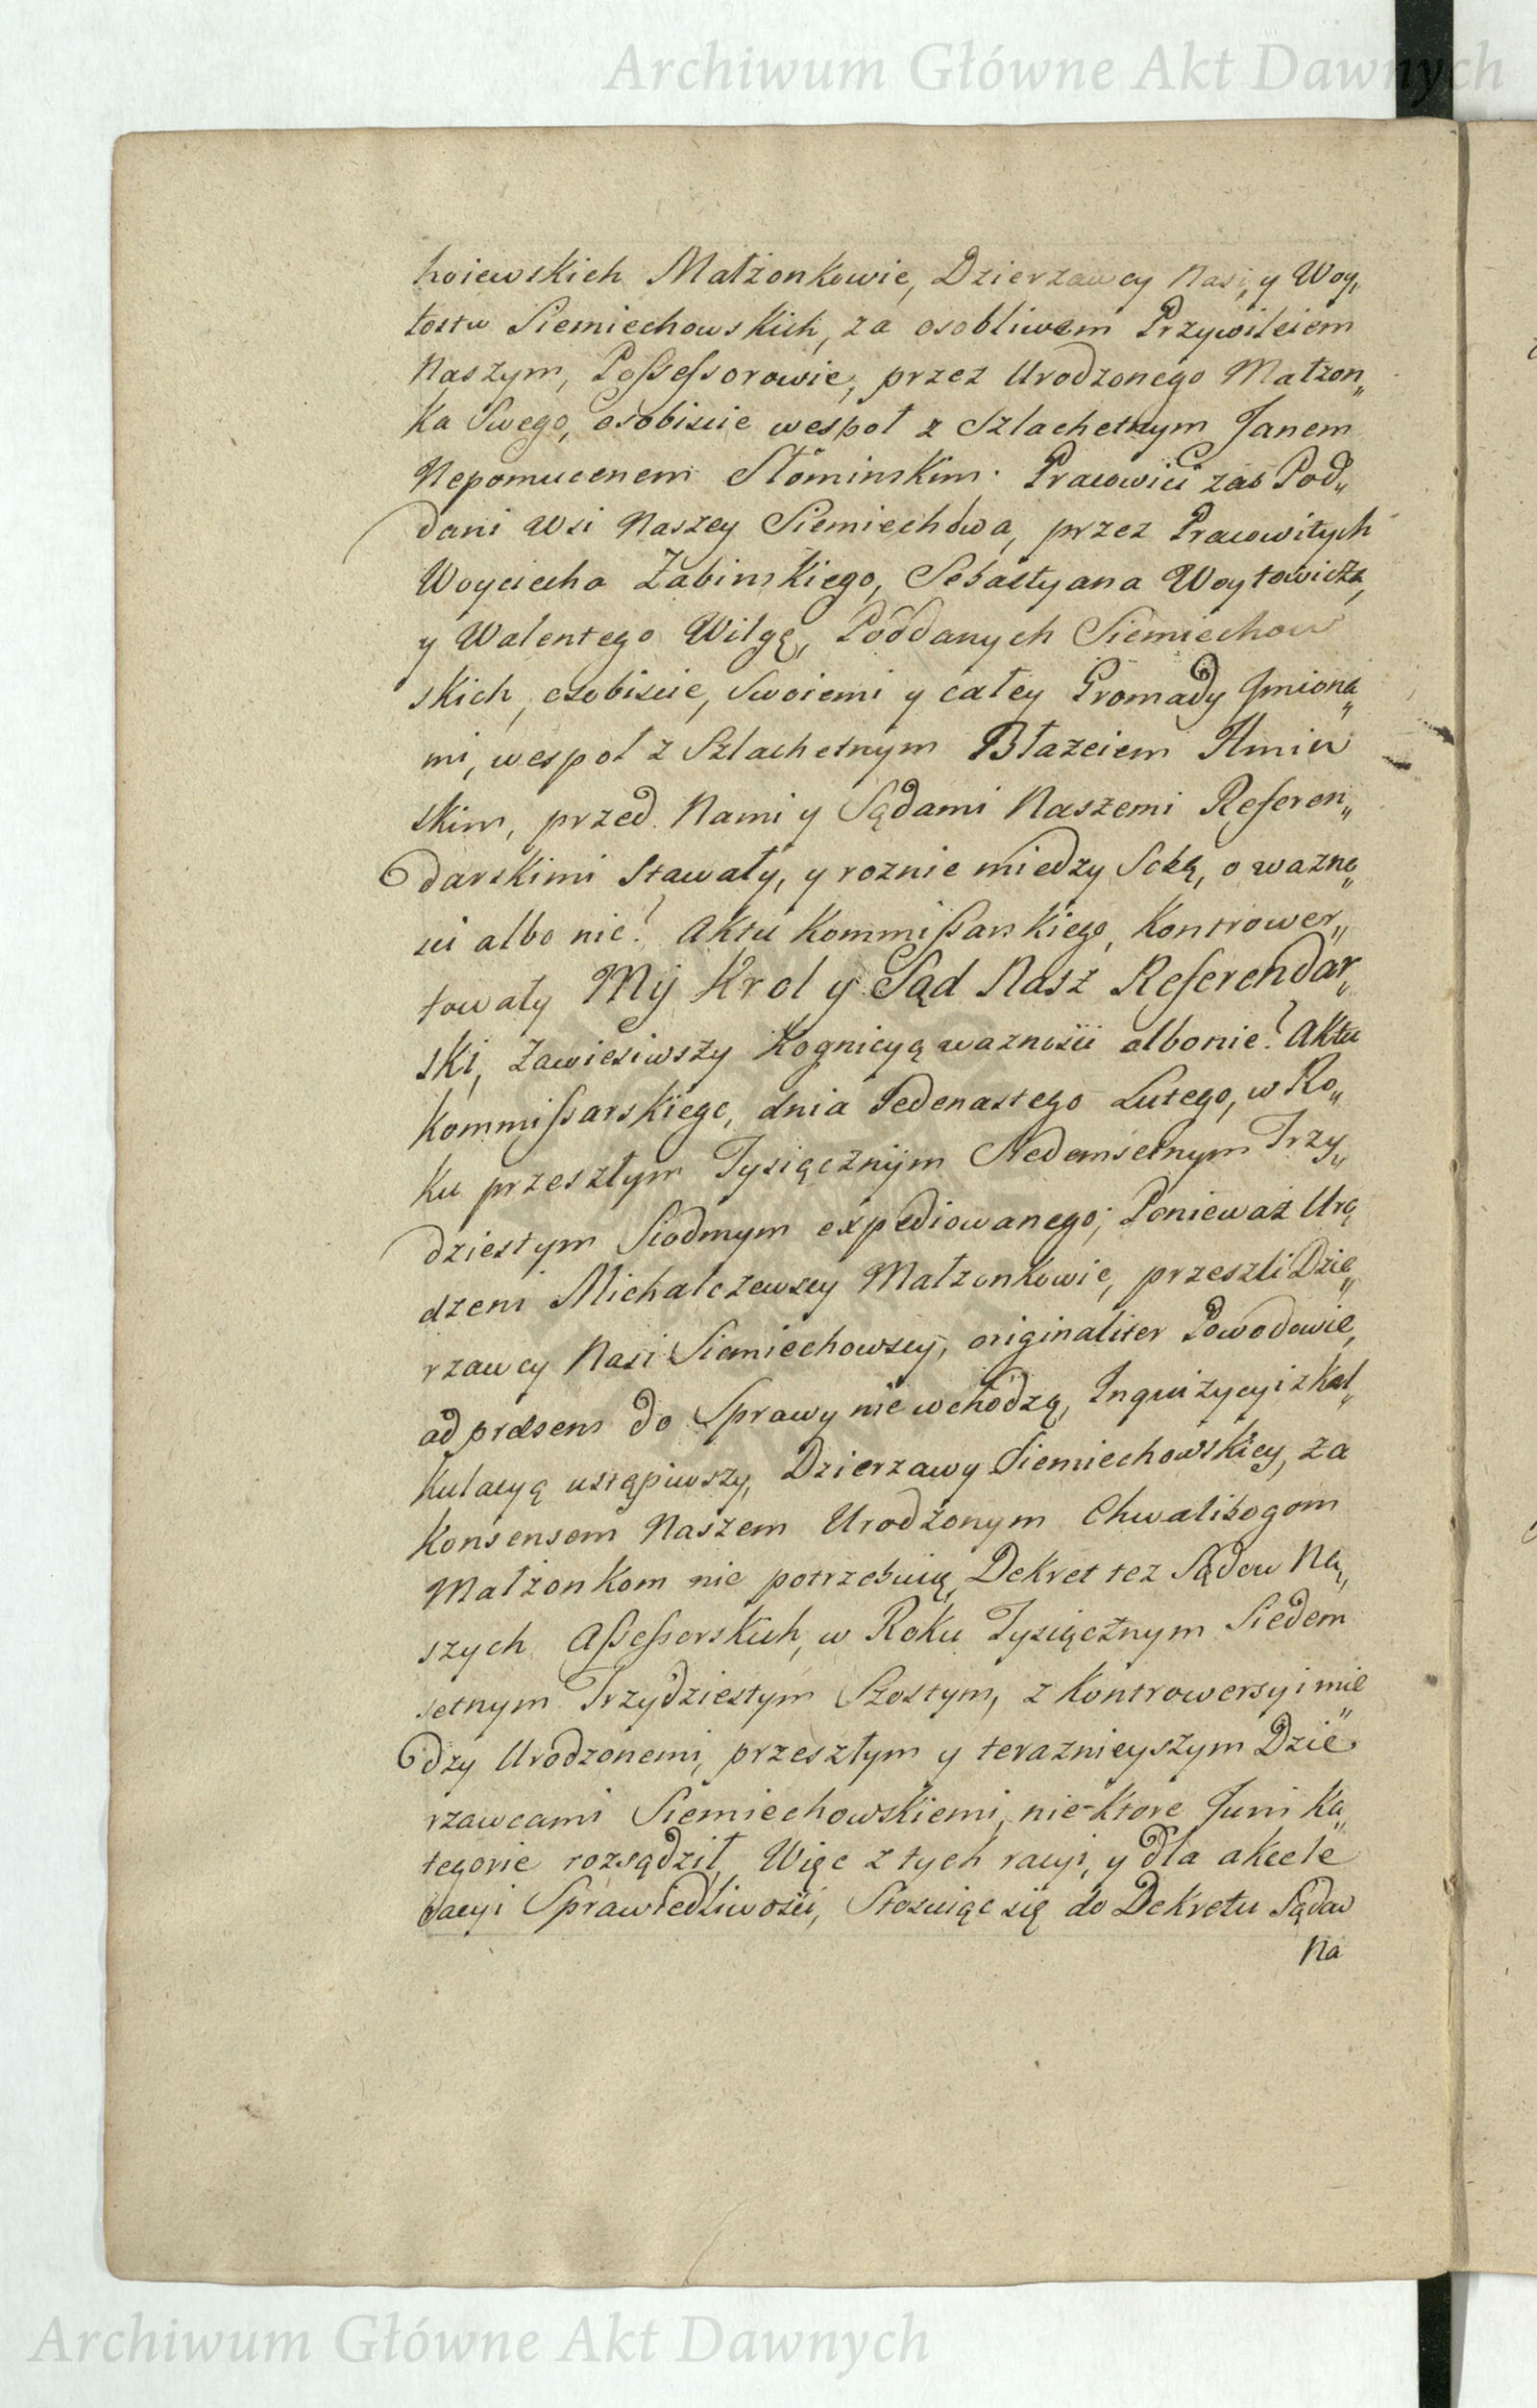 Archiwum Główne Akt Dawnych
hoiewskich Małżonkowie, Dzierzawcy Nasi, y Woy„
tostw Siemiechowskich, za osobliwem Przywileiem
Naszym, Possessorowie, przez Urodzonego Małzon„
ka Swego, osobiscie wespoł z Szlachetnym Janem
Nepomucenem Słominskim. Pracowici zas Pod„
dani Wsi Naszey Siemiechowa, przez Pracowitych
Woyciecha Zabinskiego, Sebastyana Woytowicza,
y Walentego Wilgę, Poddanych Siemiechow
skich, osobiscie, Swoiemi y całey Gromady Jmiona„
mi, wespoł z Szlachetnym Błazeiem Ilmin
skim, przed Nami y Sądami Naszemi Referen„
darskimi stawały, y roznie miedzy Sobą, o wazno„
sci albo nie? Aktu Kommissarskiego, Kontrower„
towały My Krol y Sąd Nasz Referendar„
ski, Zawiesiwszy Kognicyą waznosci albonie? Aktu
Kommissarskiego, dnia Jedenastego Lutego, w Ro„
ku przeszłym Tysiącznym Siedemsetnym Trzy„
dziestym Siodmym expediowanego; Ponieważ Uro
dzeni Michalczewscy Małzonkowie, przeszli Dzie„
rzawcy Nasi Siemiechowscy, originaliter Powodowie,
ad præsens do Sprawy nie wchodzą, Inquizycyi z Kal„
kulacyą ustąpiwszy, Dzierzawy Siemiechowskiey, za
Konsensem Naszem Urodzonym Chwalibogom
Małzonkom nie potrzebuią, Dekret tez Sądow Na„
szych Assessorskich, w Roku Tysiącznym Siedem
setnym Trzydziestym Szostym, z Kontrowersyi mie„
dzy Urodzonemi, przeszłym y teraznieyszym Dzie
rzawcami Siemiechowskiemi, nie-ktore Juris Ka„
tegorie rozsądził, Więc z tych racyi, y dla akcele
racyi Sprawiedliwosci, Stosuiąc się do Dekretu Sądow
Na
Archiwum Główne Akt Dawnych